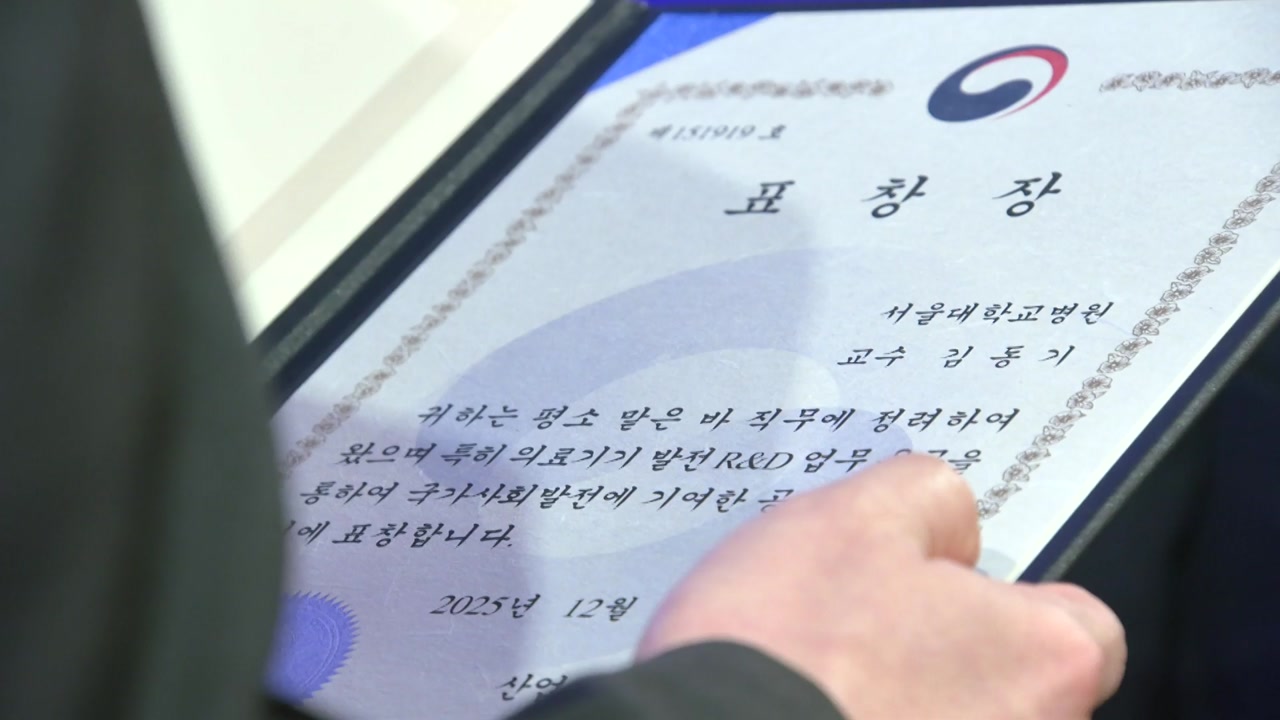 제 151919 호
표 창 장
서울대학교병원
교수 김 동 기
귀하는 평소 맡은 바 직무에 정려하여
왔으며 특히 의료기기 발전 R&D 업무
통하여 국가사회발전에 기여한
표창합니다.
2025년 12월
산업